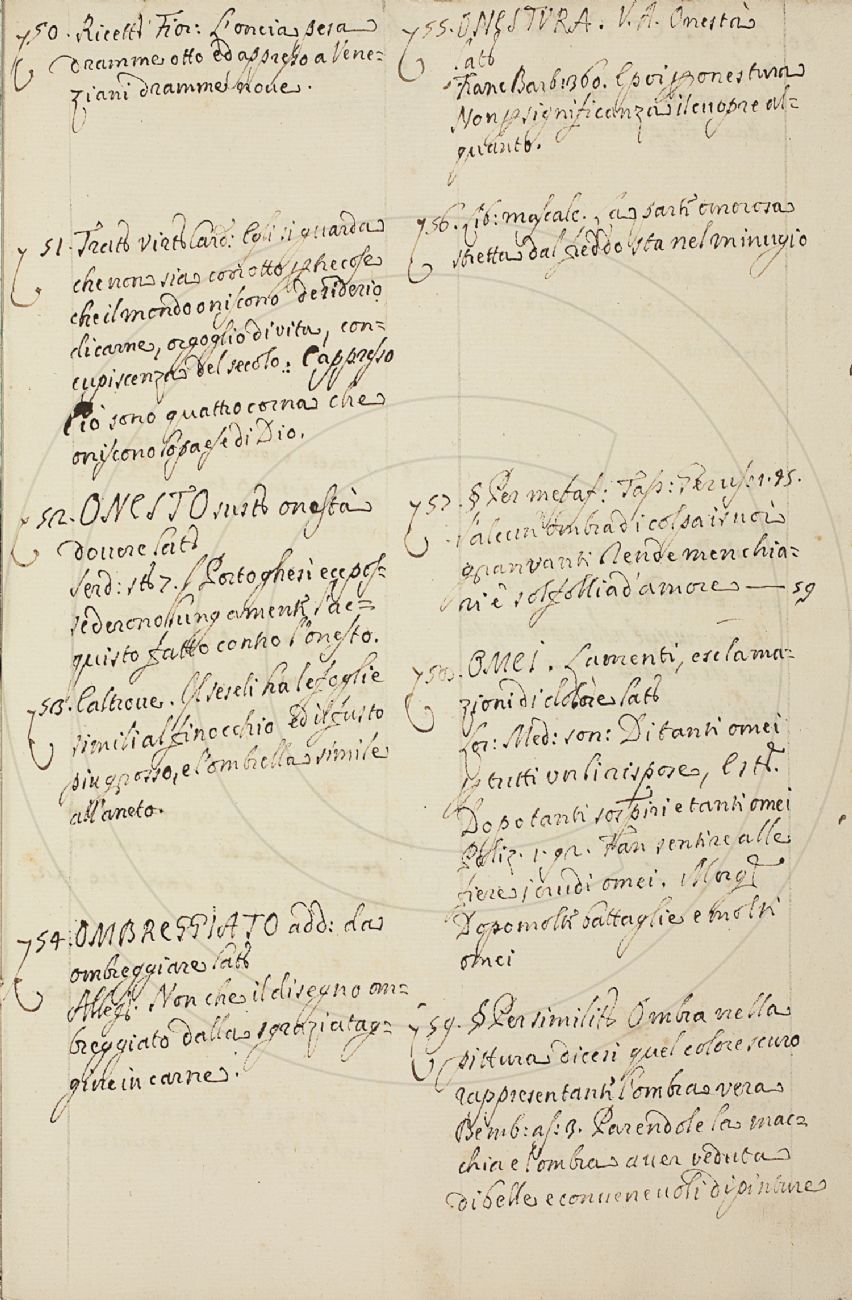 750. Ricett: Fior: L'oncia pesa
dramme otto ed appresso a Vene=
ziani dramme nove.
751. Tratt: virt: Card: Egli si guarda
che non sia corrotto p che cose
che il mondo oniscono desiderio
di carne, orgoglio di vita, con=
cupiscenza del secolo: E appresso
Ciò sono quattro corna che
oniscono lo paese di Dio.
752. ONESTO sust: onestà
dovere lat:
Serd: st: 7. I Portoghesi ec pos=
sederono lungamente l'ac=
quisto fatto contro l'onesto.
753. E altrove. Il seseli ha le foglie
simili al finocchio ed il fusto
più grosso, e l'ombrella simile
all'aneto.
754. OMBREGGIATO add: da
ombreggiare lat:
Alleg: Non che il disegno om=
breggiato dalla sgraziatag=
gine in carne.
755. ONESTURA. V.A. Onestà
lat:
Franc Barb: 360. E poi p onestura
Non p significanza il cuopre al=
quanto.
756. Lib: mascalc. La parte omorosa
stretta dal freddo sta nel minugio
757. § Per metaf: Tass: Gerus: 1. 85.
S'alcun'ombra di colpa i suoi
gran vanti Rende men chia=
ri è sol follia d'amore — 59
758. OMEI. Lamenti, esclama=
zioni di dolore lat:
Lor: Med: son: Di tanti omei
p tutti un li rispose, E st:
Dopo tanti sospiri e tanti omei
Poliz. 1. 92. Fan sentire alle
fiere i crudi omei. Morg:
Dopo molte battaglie e molti
omei
759. § Per similit: Ombra nella
pittura dicesi quel colore scuro
rappresentante l'ombra vera
Bemb: as: 3. Parendole la mac=
chia e l'ombra aver veduta
di belle e convenevoli dipinture